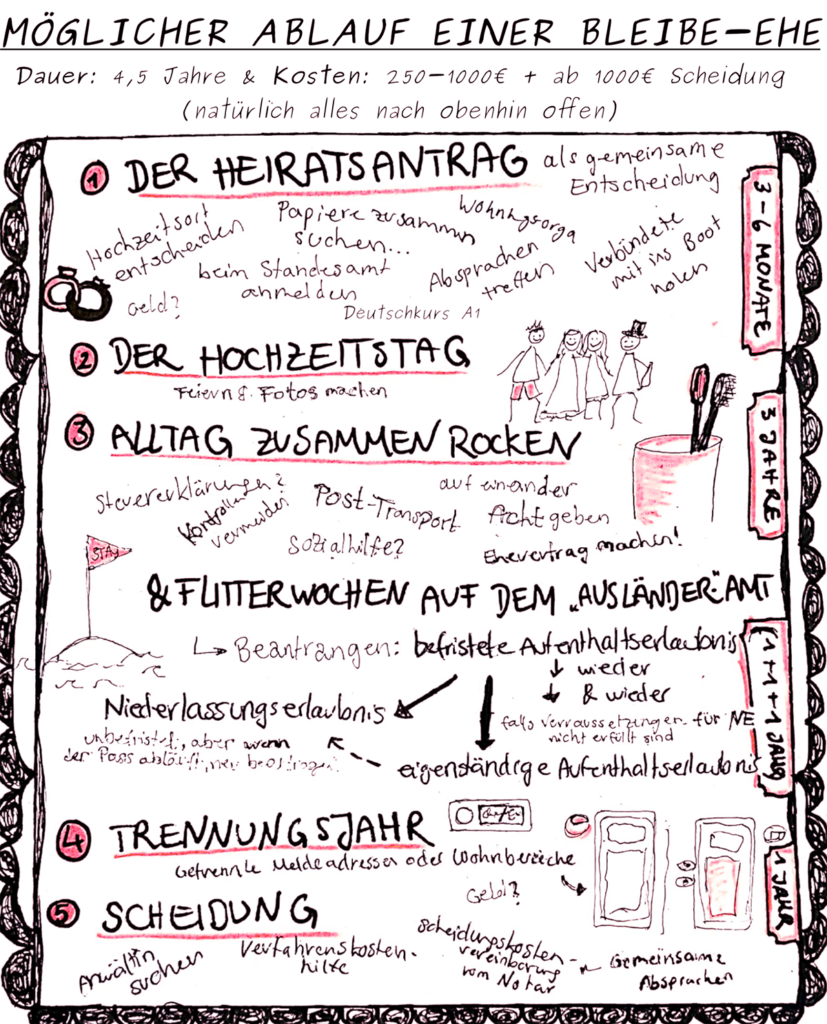 MÖGLICHER ABLAUF EINER BLEIBE-EHE
Dauer: 4,5 Jahre & Kosten: 250-1000€ + ab 1000€ Scheidung
(natürlich alles nach obenhin offen)
1 DER HEIRATSANTRAG als gemeinsame
Entscheidung
Hochzeitsort
entscheiden
Papiere zusammen
suchen...
Wohnungsorga
beim Standesamt
anmelden
Absprachen
treffen
Verbündete
mit ins Boot
holen
Geld?
Deutschkurs A1
3-6 MONATE
2 DER HOCHZEITSTAG
Feiern & Fotos machen
3 ALLTAG ZUSAMMEN ROCKEN
3 JAHRE
Steuererklärungen?
Kontrollen
vermeiden
Post-Transport
auf einander
Acht geben
Sozialhilfe?
Ehevertrag machen!
STAY
& FLITTERWOCHEN AUF DEM „AUSLÄNDER"-AMT
Beantrangen: befristete Aufenthaltserlaubnis
wieder
& wieder
(1+1+1 JAHR)
Niederlassungserlaubnis
falls Verraussetzungen für NE
nicht erfüllt sind
unbefristet, aber wenn
der Pass abläuft, neu beantragen
eigenständige Aufenthaltserlaubnis
4 TRENNUNGSJAHR
Getrennte Meldeadressen oder Wohnbereiche
1 JAHR
Geld?
5 SCHEIDUNG
Anwältin
suchen
Verfahrenskosten-
hilfe
Scheidungskosten-
vereinbarung
vom Notar
Gemeinsame
Absprachen